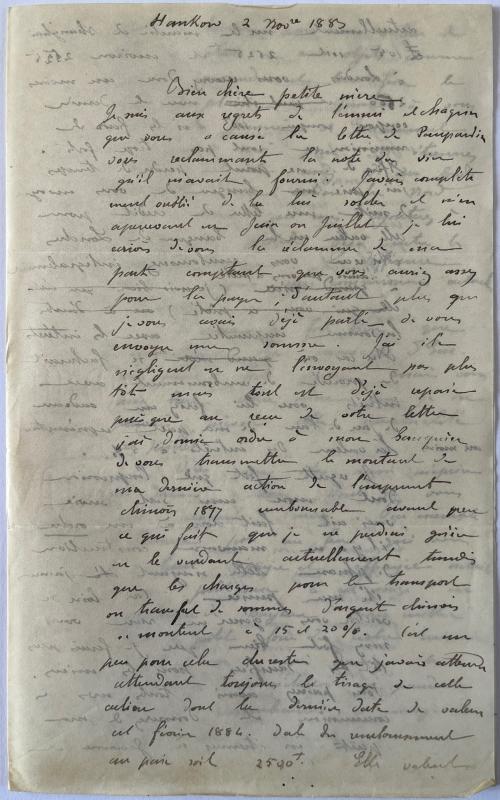 Hankow 2 Nov^re 1883
Bien chère petite mère
Je suis aux regrets de l'ennui et chagrin
que vous a causé la lettre de
vous réclamant la note du vin
qu'il m'avait fourni. J'avais complète
ment oublié de la lui solder et m'en
apercevant en Juin ou Juillet je lui
écrivis de vous la réclamer de ma
part comptant que vous auriez assez
pour la payer, d'autant plus que
je vous avais déjà parlé de vous
envoyer une somme. J'ai été
négligent en ne l'envoyant pas plus
tôt mais tout est déjà réparé
puisque au reçu de votre lettre
j'ai donné ordre à mon banquier
de vous transmettre le montant de
ma dernière action de l'emprunt
chinois 1877 remboursable avant peu
ce qui fait que je ne perdrai guère
en le vendant actuellement tandis
que les charges pour le transport
ou transfert de sommes d'argent chinois
se montent à 15 et 20 %. C'est un
peu pour cela du reste que j'avais attendu
attendant toujours le tirage de cette
action dont la dernière date de valeur
est février 1884. date du remboursement
au pair soit 2500^f. Elle